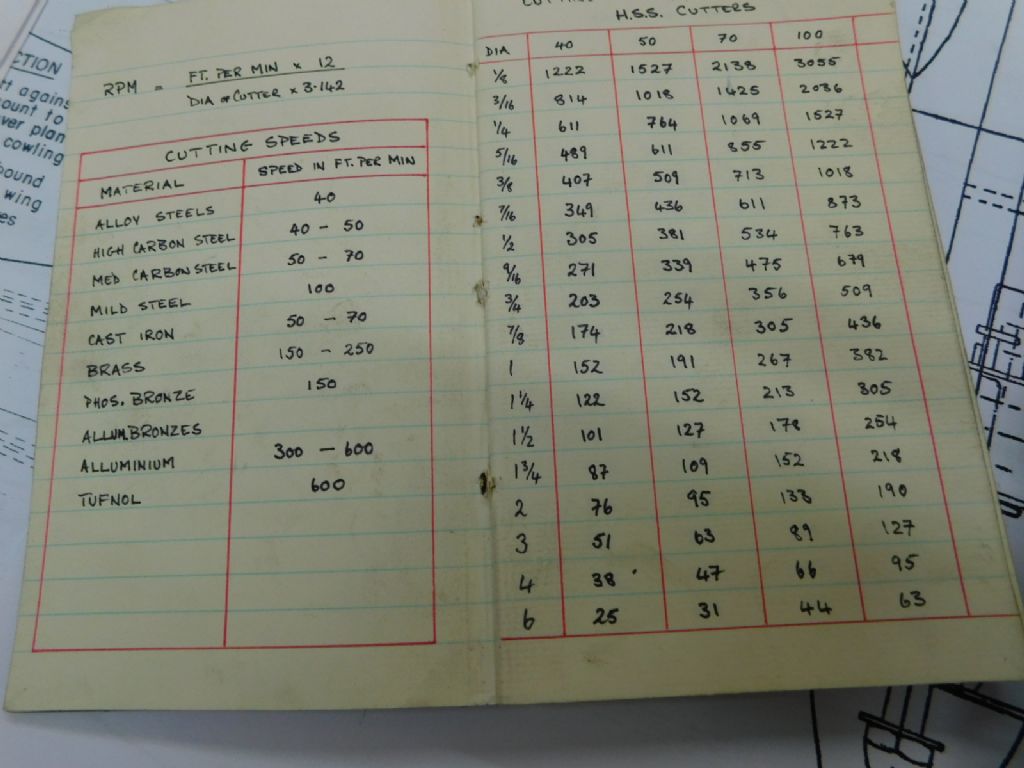 CTION
agains
ount to
ver plan
cowling
bound
wing
es
RPM = FT. PER MIN × 12
DIA OF CUTTER × 3.142
CUTTING SPEEDS
MATERIAL SPEED IN FT. PER MIN
ALLOY STEELS 40
HIGH CARBON STEEL 40 - 50
MED CARBON STEEL 50 - 70
MILD STEEL 100
CAST IRON 50 - 70
BRASS 150 - 250
PHOS. BRONZE 150
ALLUM BRONZES
ALLUMINIUM 300 - 600
TUFNOL 600
H.S.S. CUTTERS
DIA 40 50 70 100
1/8 1222 1527 2138 3055
3/16 814 1018 1425 2036
1/4 611 764 1069 1527
5/16 489 611 855 1222
3/8 407 509 713 1018
7/16 349 436 611 873
1/2 305 381 534 763
9/16 271 339 475 679
3/4 203 254 356 509
7/8 174 218 305 436
1 152 191 267 382
1 1/4 122 152 213 305
1 1/2 101 127 178 254
1 3/4 87 109 152 218
2 76 95 133 190
3 51 63 89 127
4 38 47 66 95
6 25 31 44 63